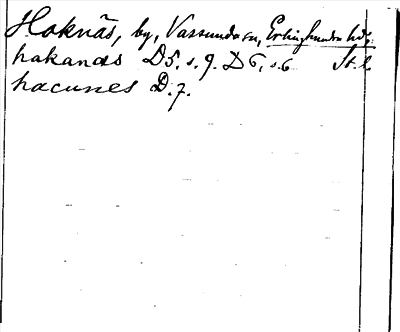 Haknäs, by, Vassunda sn, Erlinghundra hd.
hakanas D5. s. 9. D 6, s. 6 St. l.
hacunes D. 7.